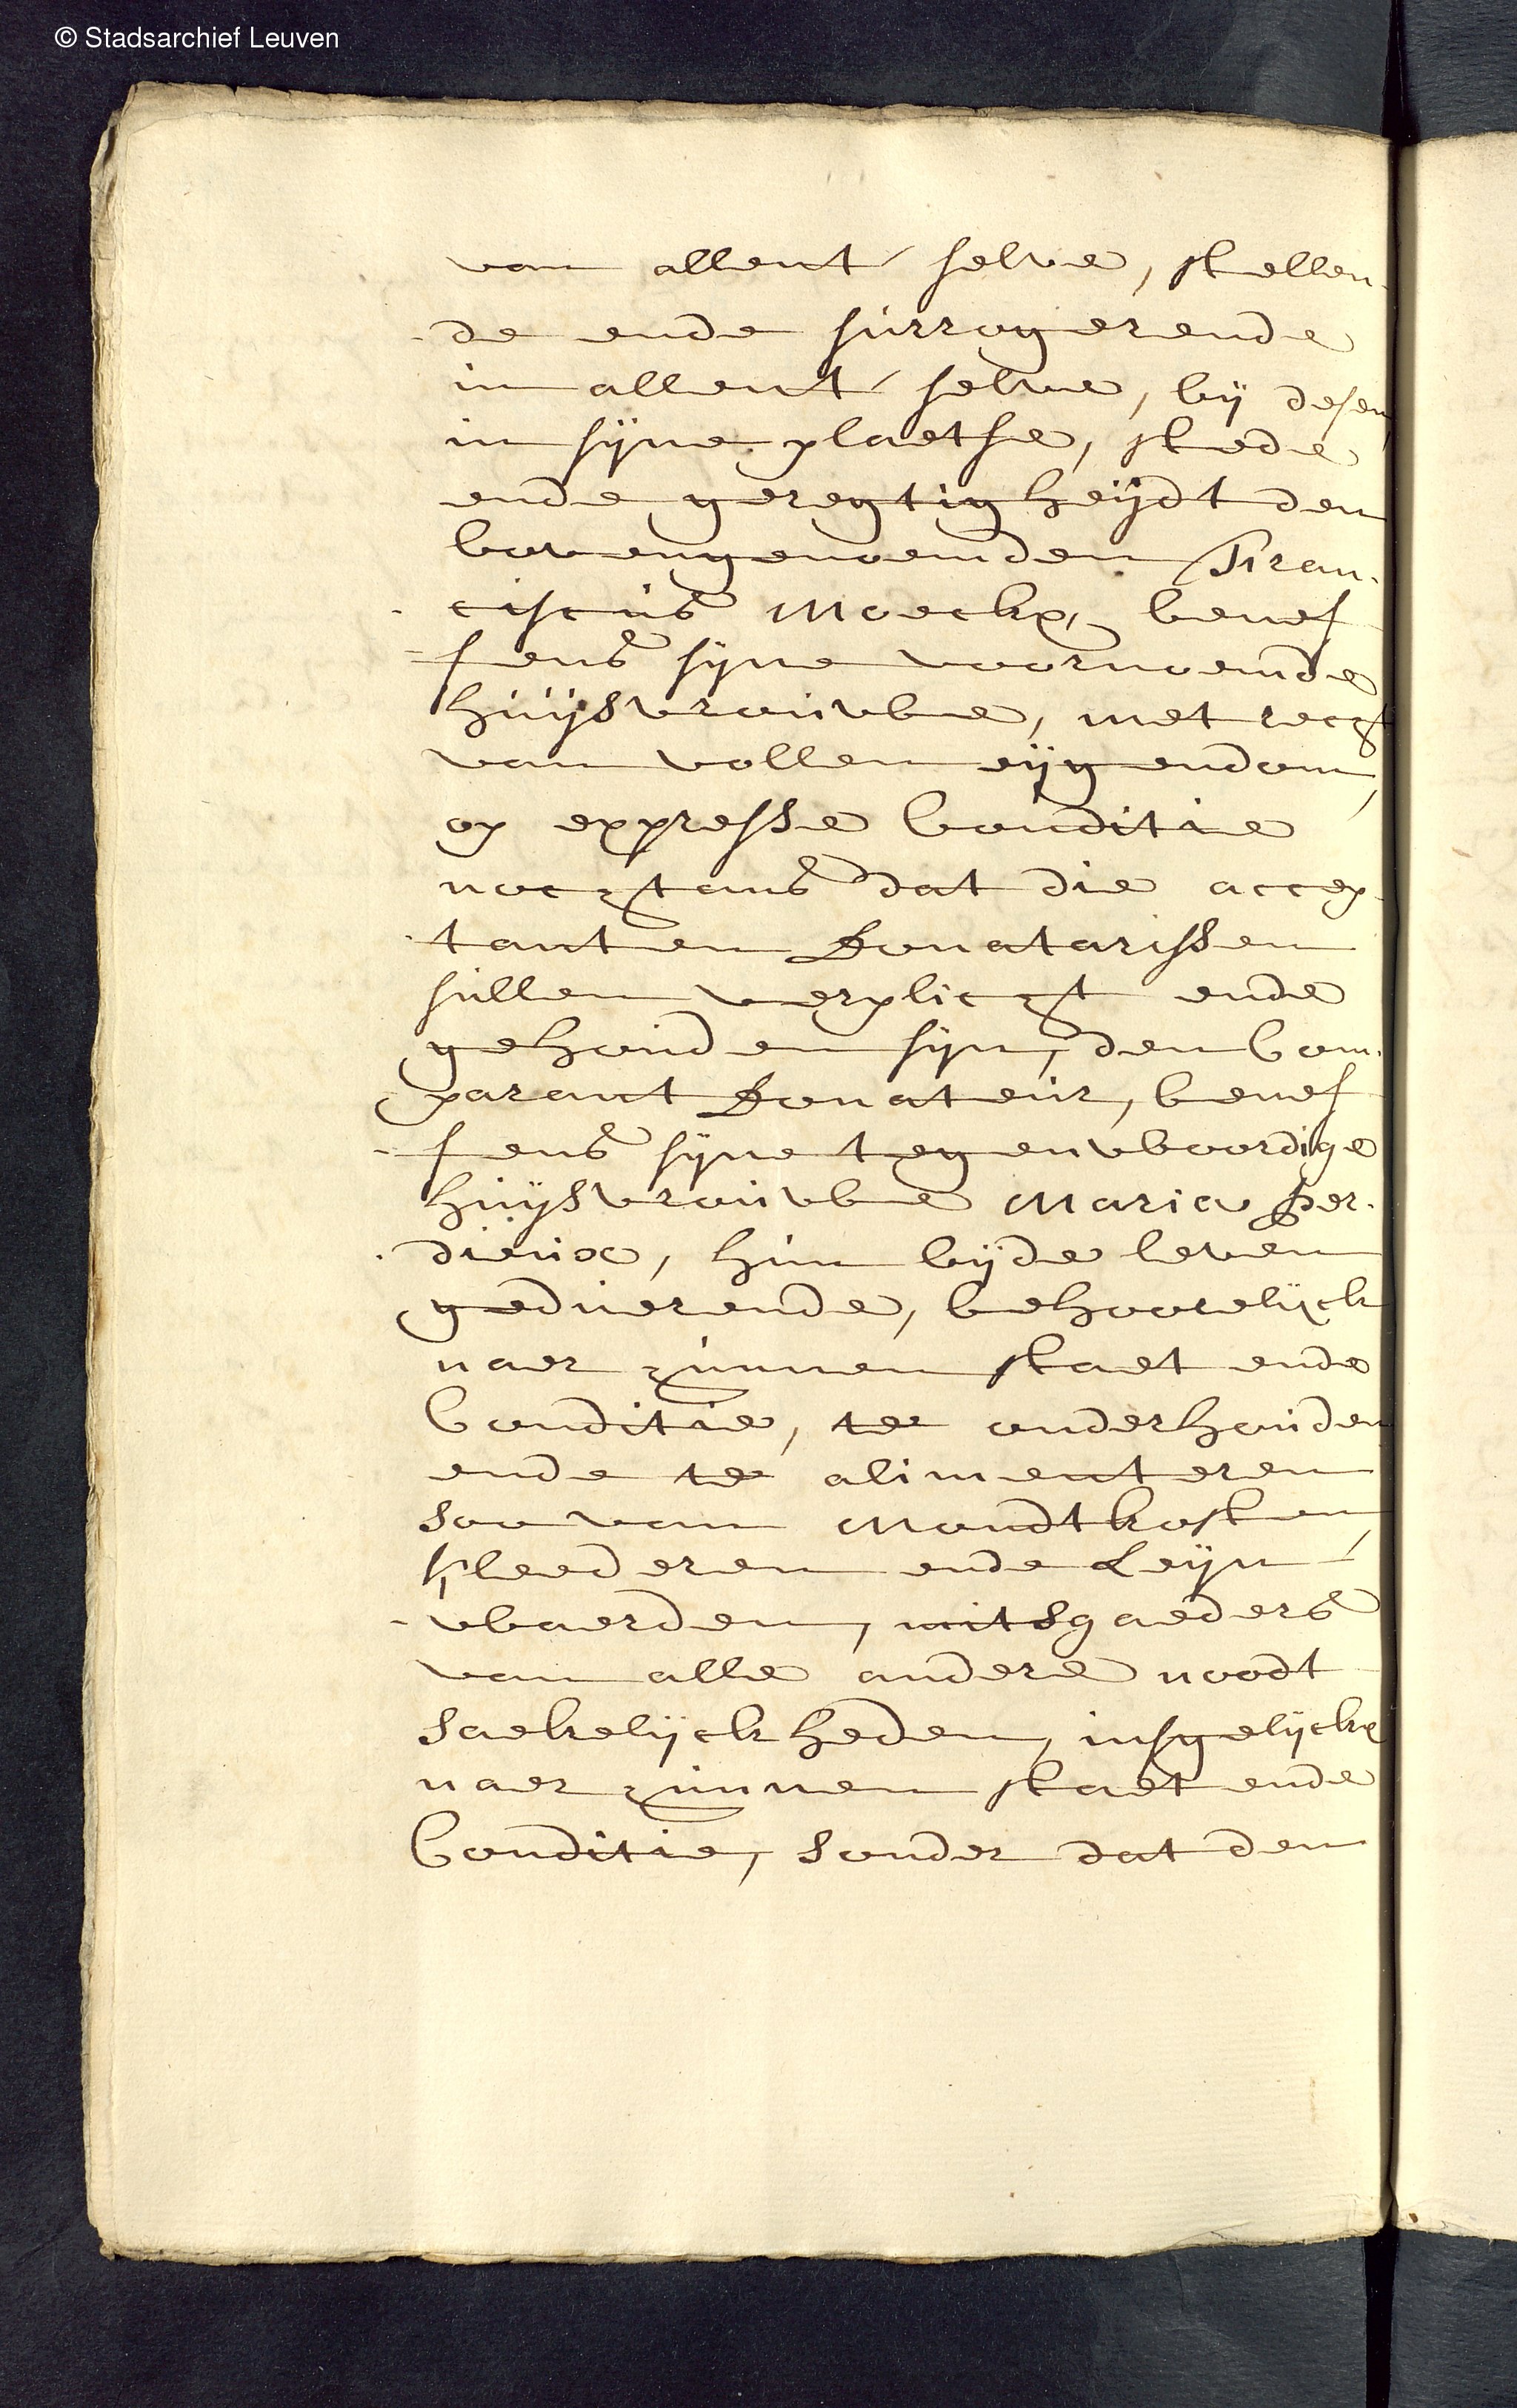 © Stadsarchief Leuven
van allent selve, stellen-
-de ende surrogerende
in allent selve, bij desen,
in sijne plaetse, stede
ende geregtigheijdt den
bovengenoemden Fran-
-ciscus Moeckx, benef
=fens sijne voornoemde
huijsvrouwe, met recgt
van vollen eijgendom,
op expresse Conditie
nocgtans dat die accep-
-tanten Donatarissen
sullen verplicgt ende
gehouden sijn, den Com-
parant Donateur, benef
=fens sijne tegenwoordige
huijsvrouwe Maria Per-
-dieux, hun bijde leven
geduerende, behoorelijck
naer hunnen staet ende
Conditie, te onderhouden
ende te alimenteren
soo van Mondtkosten,
kleederen ende Leijn-
-waerden, mitsgaeders
van alle andere noodt
saekelijckheden, insgelijckx
naer hunnen staet ende
Conditie, sonder dat den